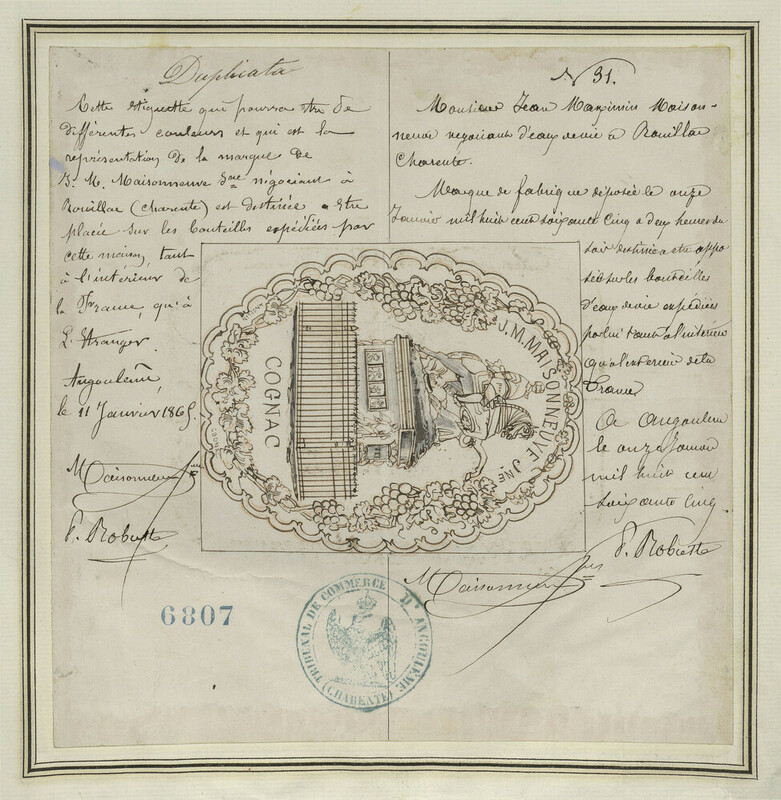 Duplicata
Cette étiquette qui pourra être de
différentes couleurs et qui est la
représentation de la marque de
J. M. Maisonneuve Jne négociant à
Rouillac (charente) est destinée a être
placée sur les bouteilles expédiées par
cette maison, tant
à l'intérieur de
la France, qu'à
L'étranger.
Angoulême,
le 11 Janvier 1865.
Maisonneuve Jne
P. Robuste
6807
No 31.
Monsieur Jean Maximin Maison-
neuve négociant d'eaux de vie à Rouillac
Charente.
Marque de fabrique déposée le onze
Janvier mil huit cent soixante Cinq a deux heures du
soir destinée a etre appo
sée sur les bouteilles
d'eau de vie expédiées
par lui tant a l'intérieur
qu'a l'exterieur de la
France
A Angoulême
le onze Janvier
mil huit cent
soixante cinq.
P. Robuste
Maisonneuve Jne
J. M. MAISONNEUVE JNE
COGNAC
TRIBUNAL DE COMMERCE D'ANGOULEME
(CHARENTE)